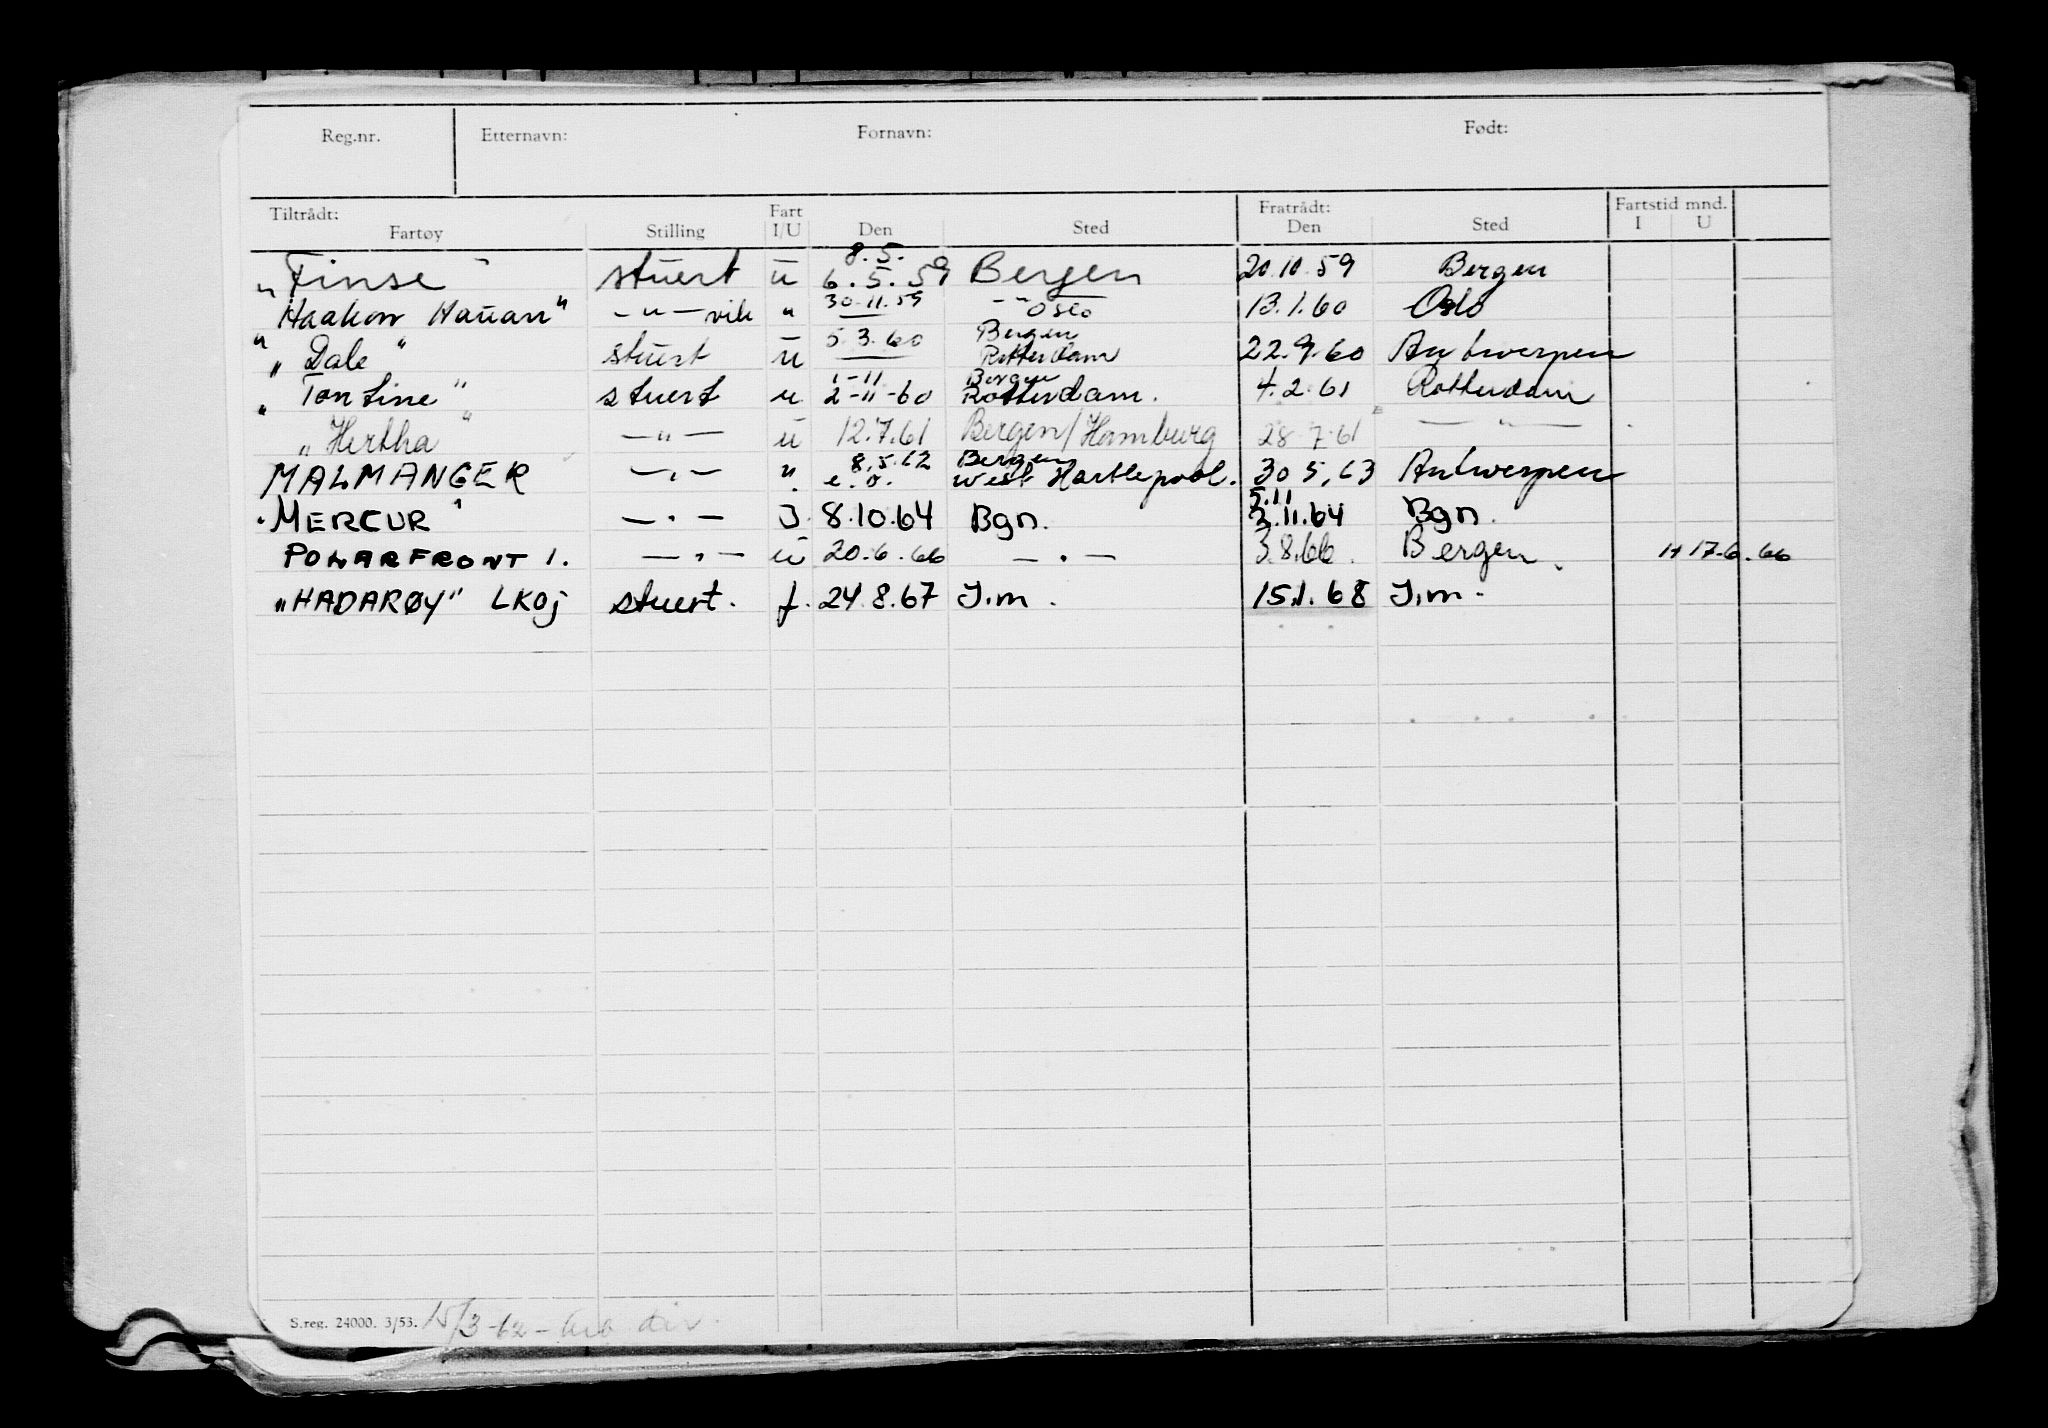 Reg.nr. Etternavn: Fornavn: Født:
Tiltrådt: Fratrådt: Fartstid mnd.
Fartøy Stilling Fart I/U Den Sted Den Sted I U
8.5.
"Finse" stuert ü 6.5.59 Bergen 20.10.59 Bergen
"Haakon Hauan" -"- vik " 30.11.59 -"- Oslo 13.1.60 Oslo
5.3.60 Bergen
"Dale" stuert ü Rotterdam 22.9.60 Antwerpen
1-11 Bergen
"Tontine" stuert u 2-11-60 Rotterdam. 4.2.61 Rotterdam
"Hertha" -"- ü 12.7.61 Bergen/Hamburg 28 7.61 -"-
8.5.62 Bergen
MALMANGER -"- " e.o. West Hartlepool. 30 5.63 Antwerpen
5.11
"MERCUR" -"- I 8.10.64 Bgn. 3.11.64 Bgn.
POLARFRONT 1. -"- ü 20.6.66 -"- 3.8.66. Bergen. H 17-6.66
"HADARØY" LKOj stuert. f. 24.8.67 I.m. 15.1.68 I.m.
S.reg. 24000. 3/53. 15/3-62-